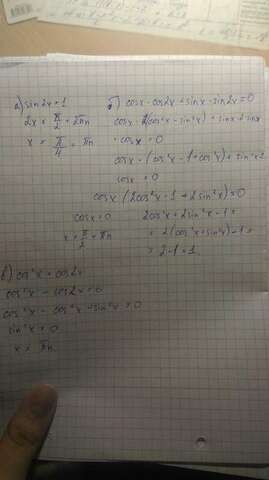 а) sin2x = 1
2x = π/2 + 2πn
x = π/4 + πn
б) cosx · cos2x + sinx · sin2x = 0
cosx · (cos²x - sin²x) + sinx · 2sinx
· cosx = 0
cosx · (cos²x - 1 + cos²x) + sin²x2
cosx = 0
cosx (2cos²x - 1 + 2sin²x) = 0
cosx = 0
x = π/2 + πn
2cos²x + 2sin²x - 1 =
= 2(cos²x + sin²x) - 1 =
= 2 - 1 = 1
в) cos²x = cos2x
cos²x - cos2x = 0
cos²x - cos²x + sin²x = 0
sin²x = 0
x = πn